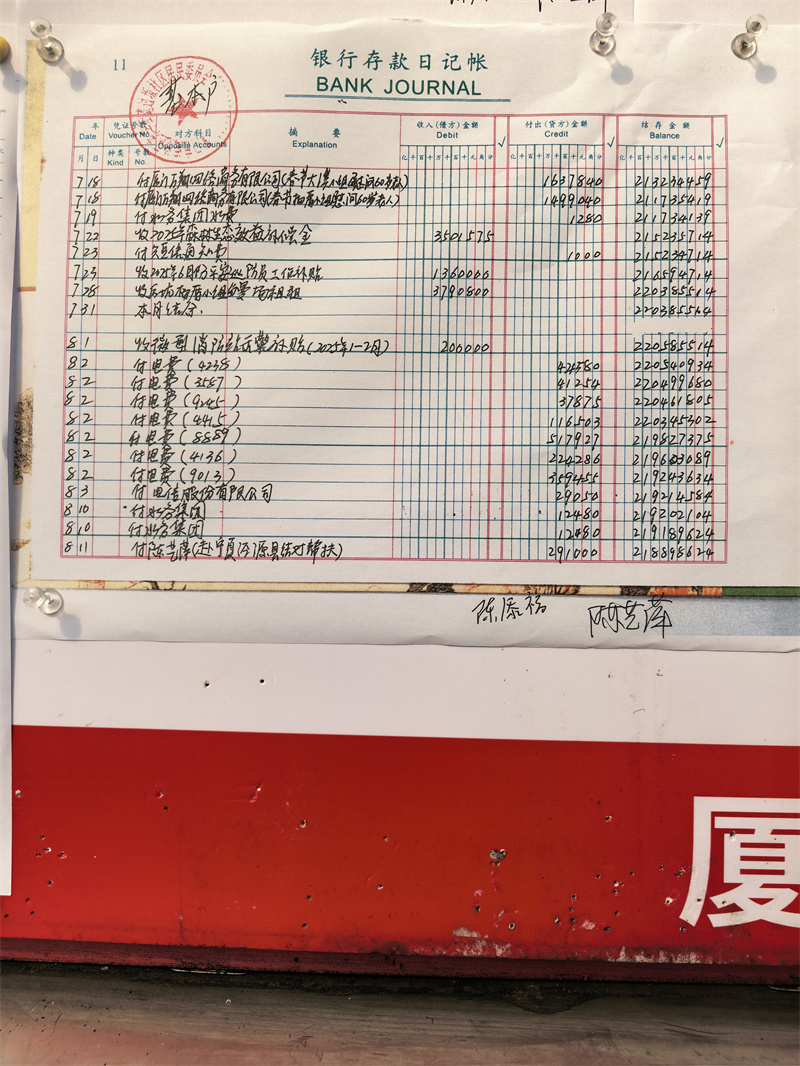 11
银行存款日记帐
BANK JOURNAL
基本户
年 Date 凭证号数 Voucher No. 对方科目 Opposite Accounts 摘要 Explanation 收入(借方)金额 Debit √ 付出(贷方)金额 Credit √ 结存金额 Balance √
月 日 种类 Kind 号数 No. 亿千百十万千百十元角分 亿千百十万千百十元角分 亿千百十万千百十元角分
7 18 付厦门万翔网络商务有限公司(春节 小组慰问60岁老人) 1637840 213234459
7 18 付厦门万翔网络商务有限公司(春节 小组慰问60岁老人) 1499040 211735419
7 19 付水务集团水费 1280 211734139
7 22 收2025年森林生态效益补偿金 3501575 215235714
7 23 付 费 1000 215234714
7 23 收2025年6月 员工作补贴 1360000 216594714
7 28 收 小组 租 3790800 220385514
7 31 本月结余. 220385514
8 1 收微型消防站 补贴(2025年1-2月) 200000 220585514
8 2 付电费(4238) 44580 220540934
8 2 付电费(3587) 41254 220499680
8 2 付电费(9245) 37875 220461805
8 2 付电费(4415) 116503 220345302
8 2 付电费(8889) 517927 219827375
8 2 付电费(4136) 224286 219603089
8 2 付电费(9013) 359455 219243634
8 3 付电信股份有限公司 29050 219214584
8 10 付水务集团 12480 219202104
8 10 付水务集团 12480 219189624
8 11 付陈艺萍(赴宁夏泾源县结对帮扶) 291000 218898624
陈添福 陈艺萍
厦